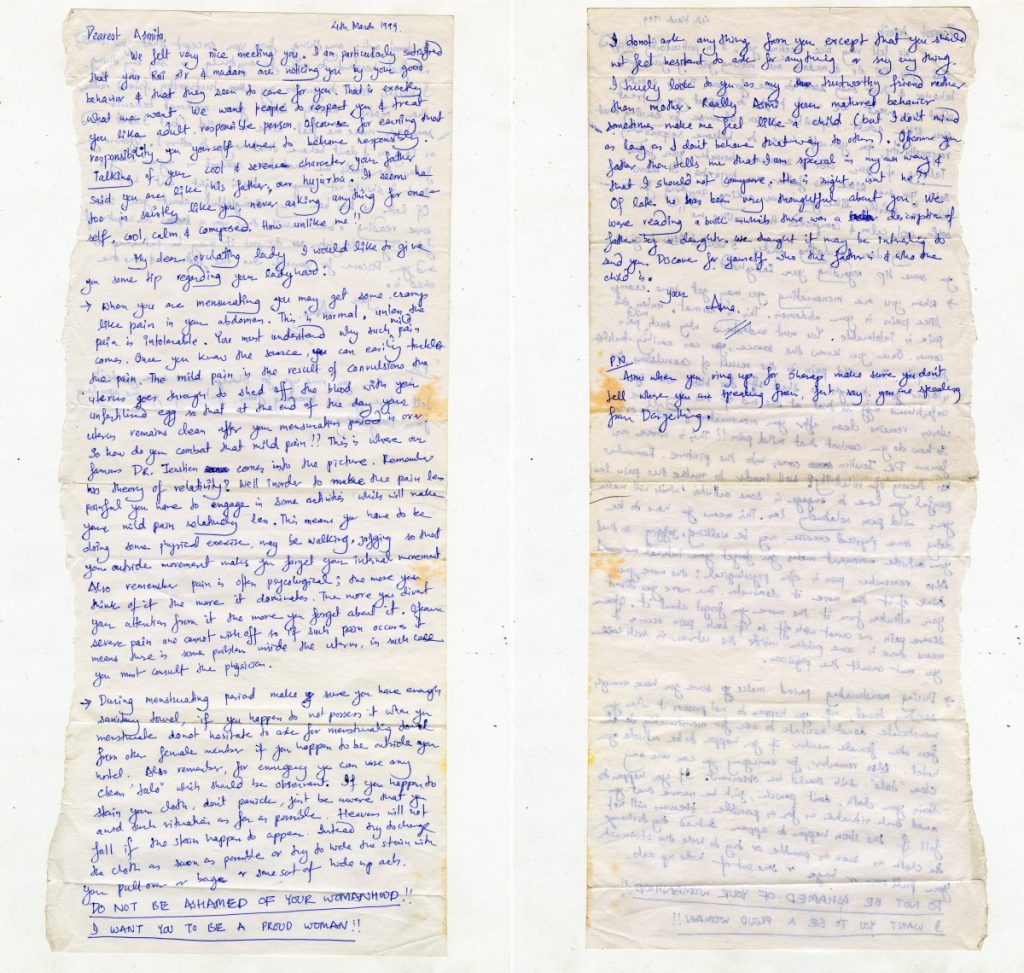 4th March 1999.
Dearest Asmita,
We felt very nice meeting you. I am particularly satisfied
that your Rai sir & madam are noticing you by your good
behavior & that they seem to care for you. That is exactly
what we want. We want people to respect you & treat
you like adult, responsible person. Ofcourse for earning that
responsibility you yourself have to behave responsibly.
Talking of your cool & serene character your father
said you are like his father, our hujurba. It seems he
too is saintly like you, never asking anything for one-
self, cool, calm & composed. How unlike me!!
My dear ovulating lady I would like to give
you some tip regarding your ladyhood:
→ When you are mensurating you may get some cramp
like pain in your abdomen. This is normal, unless the
pain is intolerable. You must understand why such mild pain
comes. Once you know the source, you can easily tackle
the pain. The mild pain is the result of convulsions the
uterus goes through to shed off the blood with your
unfertilised egg so that at the end of the day your
uterus remains clean after your mensuration period is over.
So how do you combat that mild pain!! This is where our
famous DR. Ienstien comes into the picture. Remember
his theory of relativity? Well inorder to make the pain less
painful you have to engage in some activities which will make
your mild pain relatively less. This means you have to be
doing some physical exercise, may be walking, jogging so that
your outside movement makes you forget your internal movement
Also remember pain is often psycological; the more you
think of it the more it dominates. The more you divert
your attention from it the more you forget about it. Ofcourse
severe pain one cannot wish off so if such pain occurs it
means there is some problem inside the uterus, in such case
you must consult the physician.
→ During menstruating period make sure you have enough
sanitary towel, if you happen to not possess it when you
menstruate donot hesitate to ask for menstruating towel
from other female member if you happen to be outside your
hotel. Also remember, for emergency you can use any
clean "talo" which should be observant. If you happen to
stain your cloth, don't panick, just be aware that you
avoid such situation as far as possible. Heavens will not
fall if the stain happen to appear. Intead try to change
the cloth as soon as possible or try to hide the stain with
your pull over or bag or some sort of hide up acts.
DO NOT BE ASHAMED OF YOUR WOMANHOOD!!
I WANT YOU TO BE A PROUD WOMAN!!
I donot ask anything from you except that you should
not feel hesitant to ask for anything or say anything.
I truely look to you as my trustworthy friend rather
than mother. Really Asmi your matured behavior
sometimes make me feel like a child (but I don't mind
as long as I don't behave that way to others). Ofcourse your
father then tells me that I am special in my own way &
that I should not compare. He is right, isnt he??
Of late he has been very thoughtful about you. We
were reading a book which there was a description of
father by a daughter. We thought it may be intrating to
send you. Discover for yourself who the father is & who the
child is.
your
Ama.
P.N.
Asmi when you ring up for Sharap make sure you don't
tell where you are speaking from, just say you are speaking
from Darjeeling.